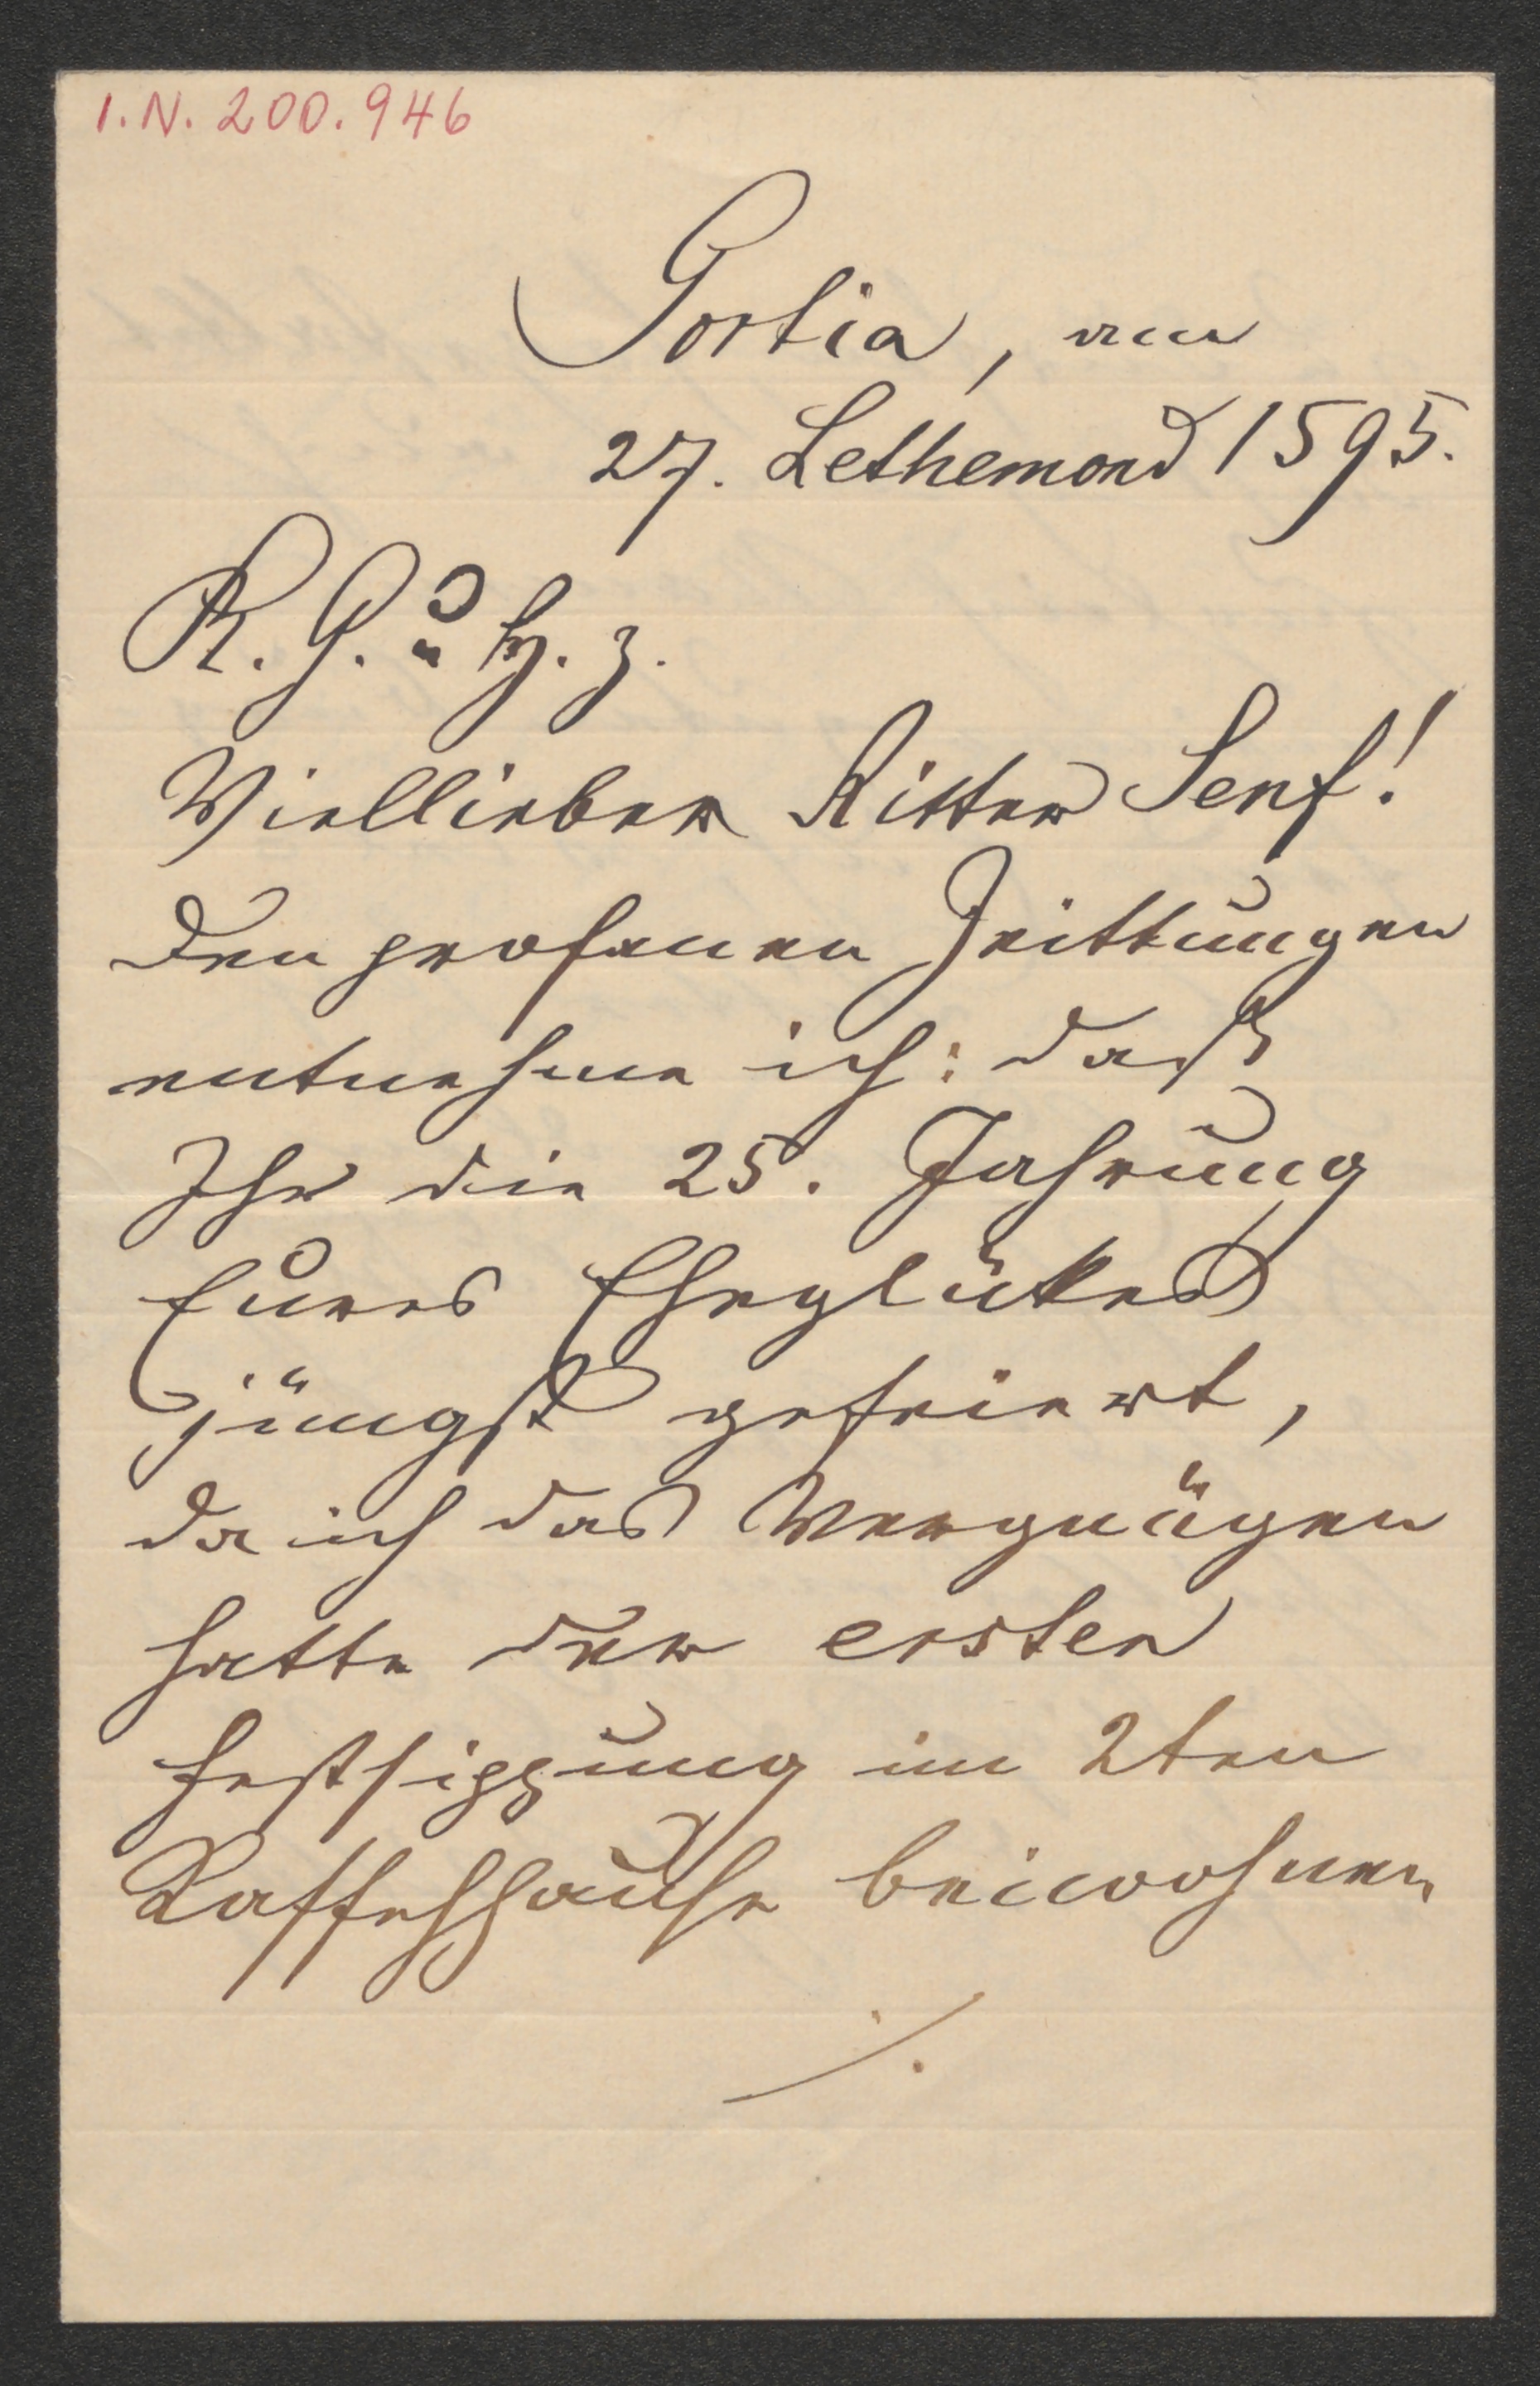 I.N. 200.946
Portia, am
27. Lethemond 1595.
R. G. u H. z.
Viellieber Ritter Senf!
Den profanen Zeittungen
entnehme ich: daß
Ihr die 25. Jahrung
Eures Eheglükes
jüngst gefeiert,
da ich das Vergnügen
hatte der ersten
Festsippung im 2ten
Kaffehhause beiwohnen
./.